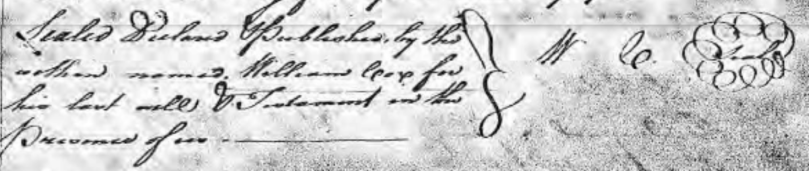 Sealed Declared & Published, by the
within named, William Cox for
his last will & Testament in the
Presence of us
W C. Seal